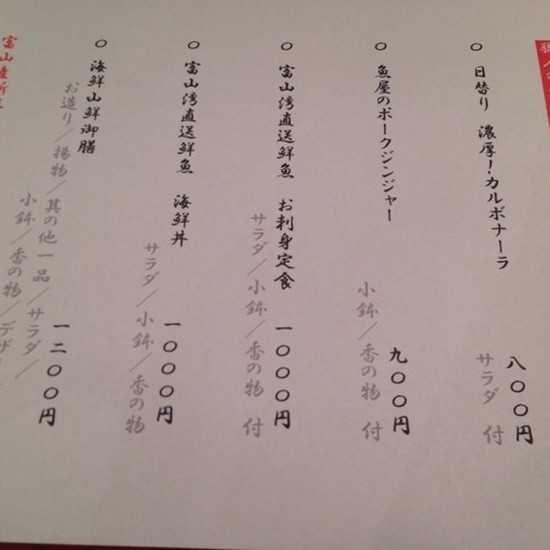 ○ 日替り 濃厚!カルボナーラ
八〇〇円
サラダ 付
○ 魚屋のポークジンジャー
九〇〇円
小鉢/香の物 付
○ 富山湾直送鮮魚 お刺身定食
一〇〇〇円
サラダ/小鉢/香の物 付
○ 富山湾直送鮮魚 海鮮丼
一〇〇〇円
サラダ/小鉢/香の物
○ 海鮮山鮮御膳
一二〇〇円
お造り/揚物/其の他一品/サラダ/
小鉢/香の物/デザ
富山産